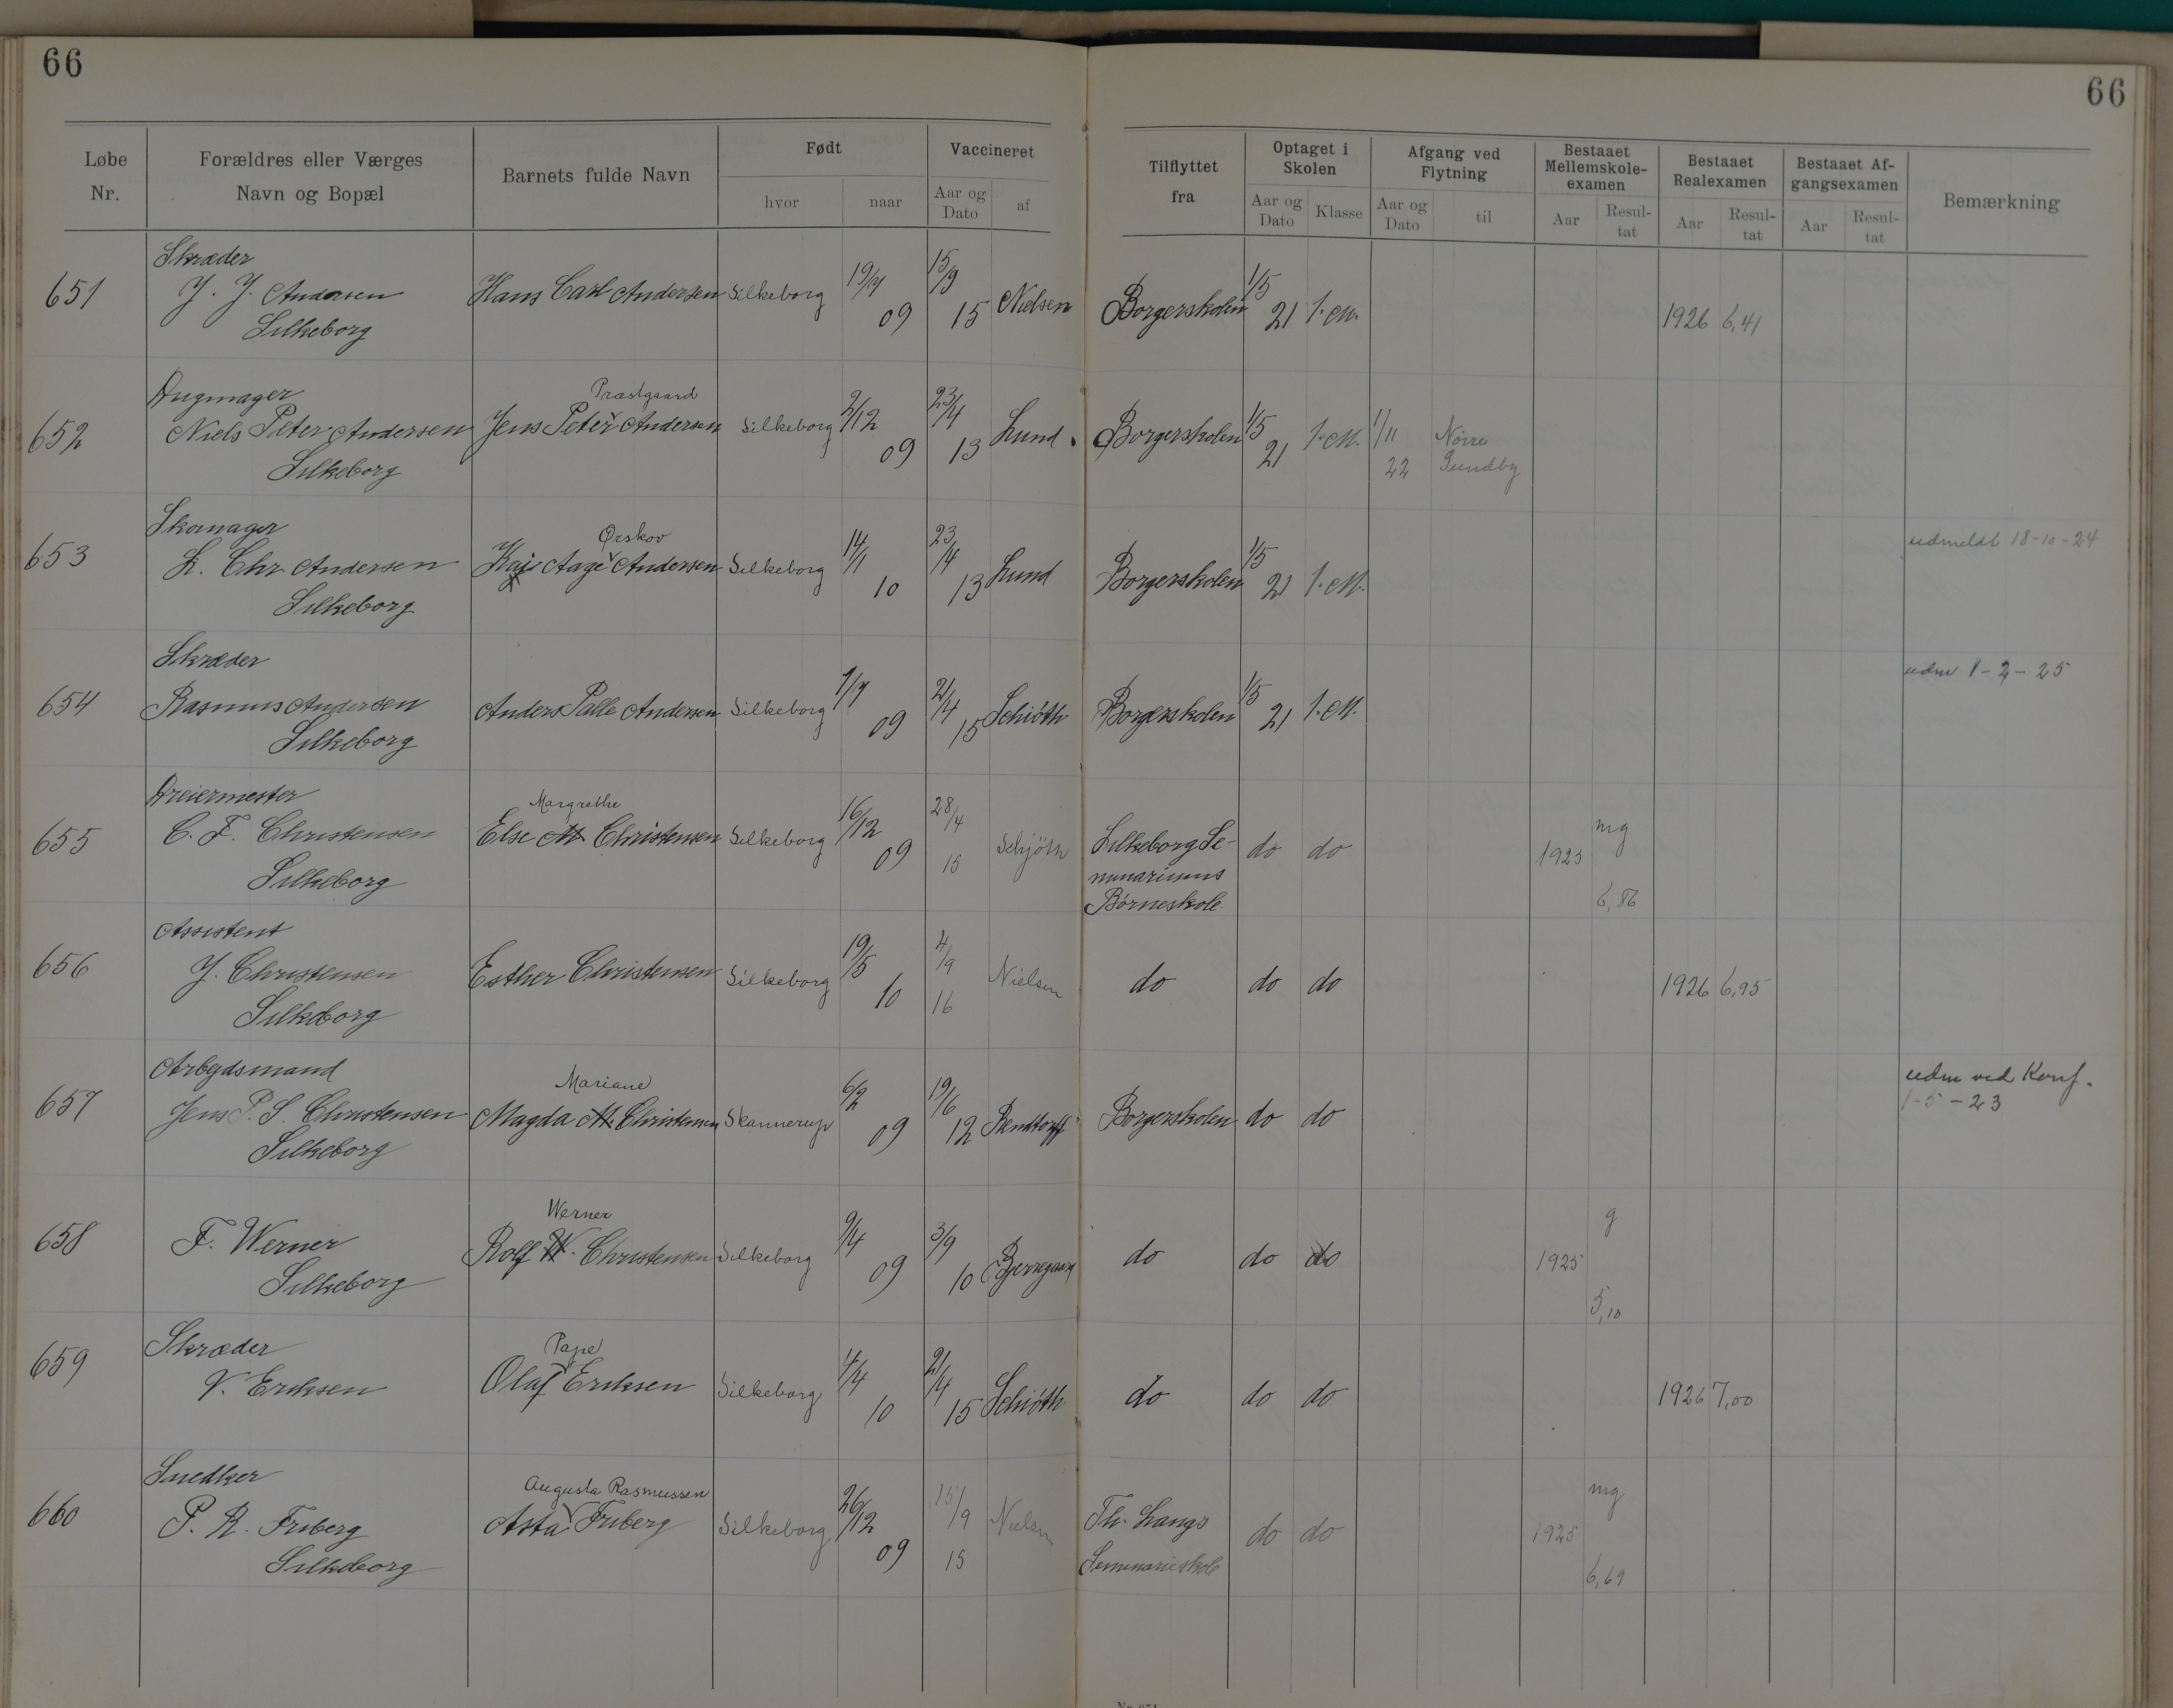 66
66
Løbe Nr.
Forældres eller Værges Navn og Bopæl
Barnets fulde Navn
Født
hvor
naar
Vaccineret
Aar og Dato
af
Tilflyttet fra
Optaget i Skolen
Aar og Dato
Klasse
Afgang ved Flytning
Aar og Dato
til
Bestaaet Mellemskole-examen
Aar
Resul-tat
Bestaaet Realexamen
Aar
Resul-tat
Bestaaet Af-gangsexamen
Aar
Resul-tat
Bemærkning
Skræder
651 J. J. Andersen Hans Carl Andersen Silkeborg 09 15/9 15 Nielsen Borgerskolen 1/5 21 1.M. 1926 6,41
Silkeborg
Præstgaard
652 Niels Peter Andersen Jens Peter Andersen Silkeborg 2/12 09 23/4 13 Lund. Borgerskolen 1/5 21 1.M. 1/11 22 Nörre Sundby
Silkeborg
Skomager Ørskov
653 L. Chr Andersen Kaj Aage Andersen Silkeborg 14/1 10 23/4 13 Lund Borgerskolen 1/5 21 1.M. udmeldt 18-10-24
Silkeborg
Skræder
654 Rasmus Andersen Anders Palle Andersen Silkeborg 09 21/4 15 Schiöth Borgerskolen 1/5 21 1.M. udm 1-2-25
Silkeborg
Dreiermester Margrethe
655 C. F. Christensen Else M Christensen Silkeborg 16/12 09 28/4 15 Schjöth Silkeborg Se- do do 1925 mg 6,86
Silkeborg minariums
Börneskole
Assistent
656 J. Christensen Esther Christensen Silkeborg 19/5 10 4/9 16 Nielsen do do do 1926 6,95
Silkeborg
Arbejdsmand Mariane
657 Jens P. S. Christensen Magda M. Christensen Skannerup 6/2 09 19/6 12 Borgerskolen do do udm ved Konf. 1-5-23
Silkeborg
Werner
658 F. Werner Rolf W. Christensen Silkeborg 9/4 09 3/9 10 do do do 1925 g 5,10
Silkeborg
Skræder Pape
659 V. Eriksen Olaf Eriksen Silkeborg 4/4 10 21/4 15 Schiöth do do do 1926 7,00
Snedker Augusta Rasmussen
660 P. R. Friberg Asta Friberg Silkeborg 26/12 09 15/9 15 Nielsen Th. Langs do do 1925 mg 6,69
Silkeborg Seminarieskole